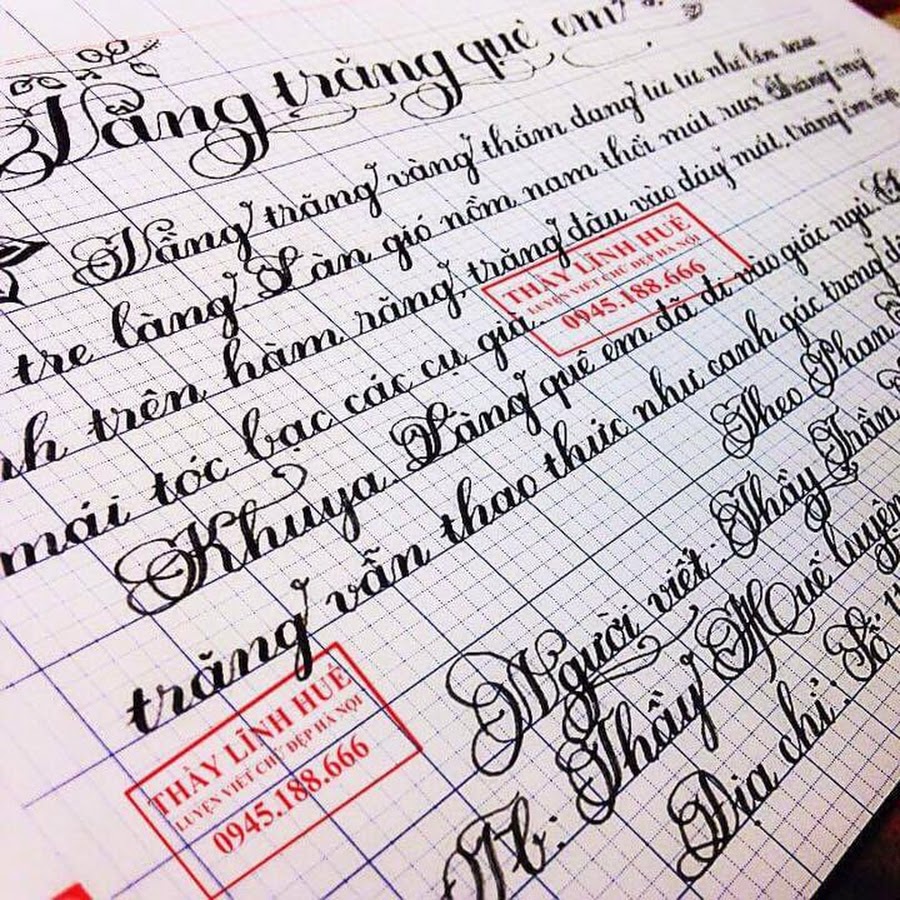 Vầng trăng quê em
Vầng trăng vàng thắm đang từ từ nhô lên sau
tre làng. Làn gió nồm nam thổi mát rượi. Trăng óng
trên hàm răng, trăng đậu vào đáy mắt, trăng ôm ấp
mái tóc bạc các cụ già.
Khuya. Làng quê em đã đi vào giấc ngủ.
trăng vẫn thao thức như canh gác trong
Theo Phan
Người viết: Thầy Trần
Thầy Huế luyện
Địa chỉ: Số
THẦY LĨNH HUẾ
LUYỆN VIẾT CHỮ ĐẸP HÀ NỘI
0945.188.666
THẦY LĨNH HUẾ
LUYỆN VIẾT CHỮ ĐẸP HÀ NỘI
0945.188.666